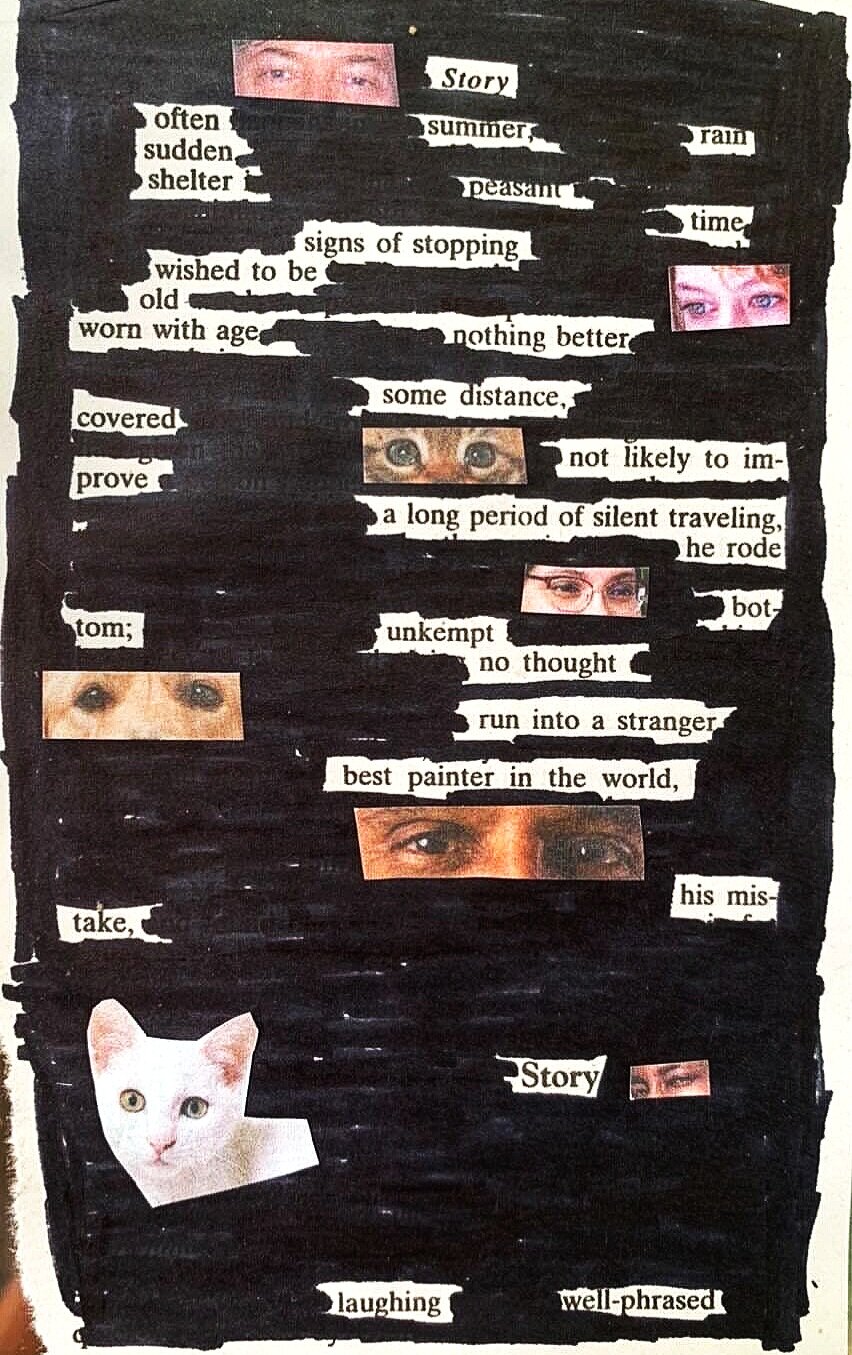 Story
often summer, rain
sudden
shelter peasant
time
signs of stopping
wished to be
old
worn with age nothing better
some distance,
covered
not likely to im-
prove
a long period of silent traveling,
he rode
bot-
tom; unkempt
no thought
run into a stranger
best painter in the world,
his mis-
take,
Story
laughing well-phrased